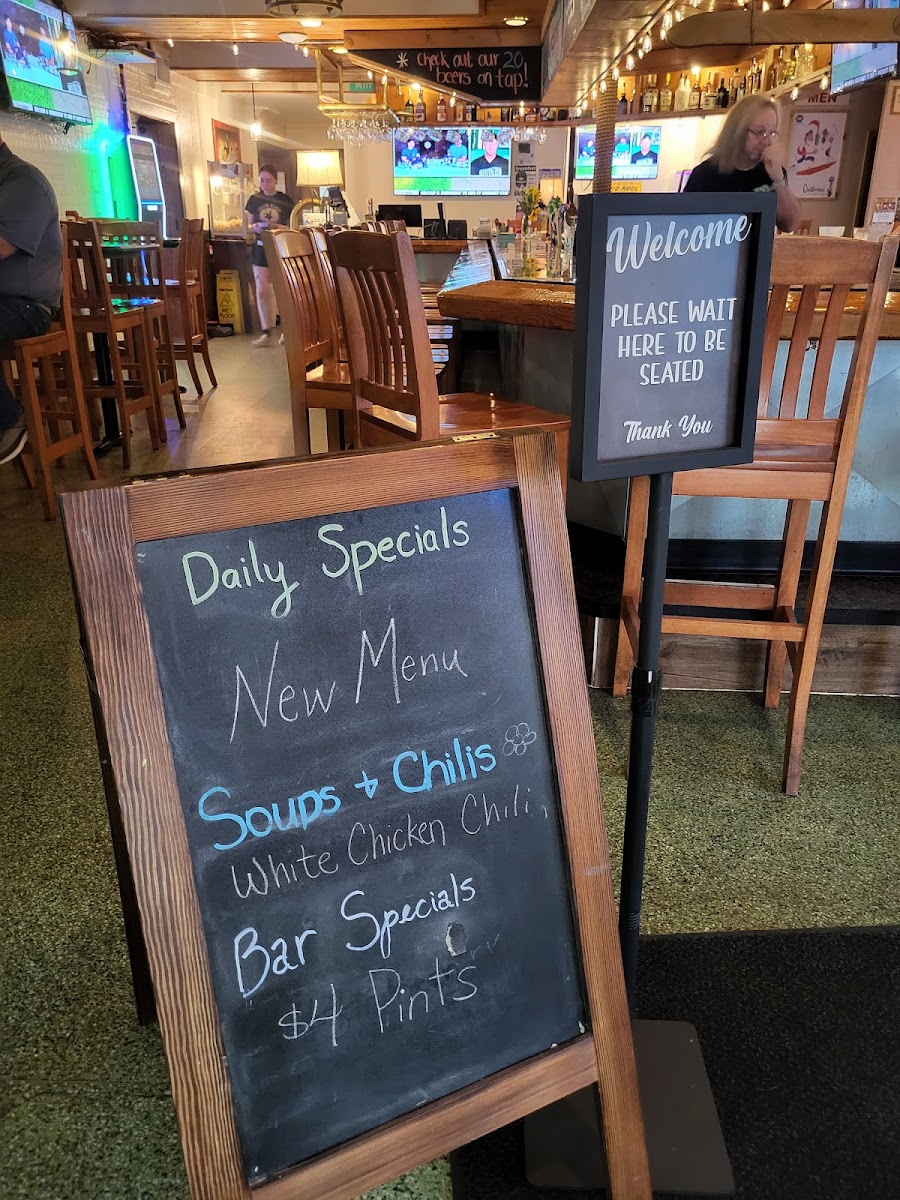 * check out our 20
beers on tap!
MEN
Welcome
PLEASE WAIT
HERE TO BE
SEATED
Thank You
Daily Specials
New Menu
Soups + Chilis
White Chicken Chili,
Bar Specials
$4 Pints